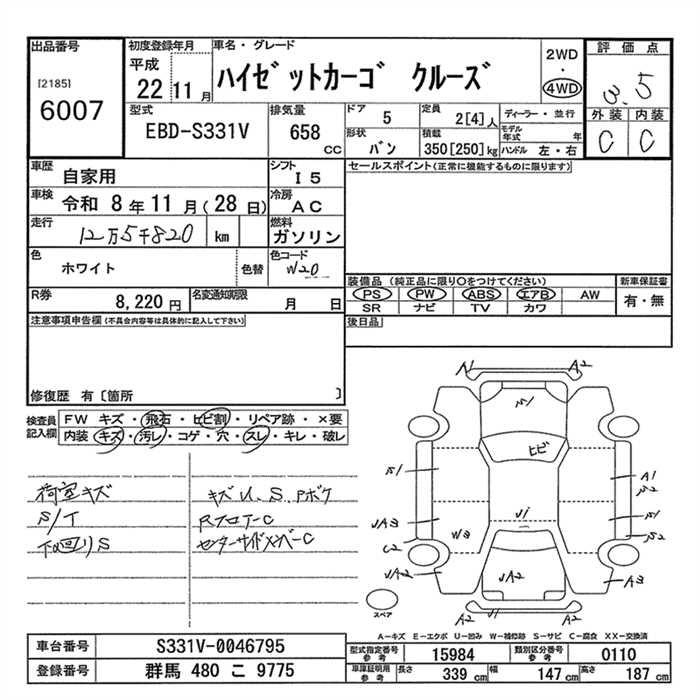 出品番号
[2185]
6007
初度登録年月
平成
22 11月
車名・グレード
ハイゼットカーゴ クルーズ
2WD
・
4WD
評価点
3.5
外装 内装
C C
型式
EBD-S331V
排気量
658
cc
ドア
5
定員
2[4]人
形状
バン
積載
350[250]kg
ディーラー・並行
モデル年式 年
ハンドル 左・右
車歴
自家用
シフト
I5
車検
令和 8年 11月(28日)
冷房
AC
走行
12万5千820 km
燃料
ガソリン
色
ホワイト
色替
色コード
W20
R券
8,220円
名変通知期限
月 日
セールスポイント(正常に機能するものに限ります)
装備品(純正品に限り○をつけてください)
新車保証書
PS PW ABS エアB AW
有・無
SR ナビ TV カワ
後日品
注意事項申告欄(不具合内容等は具体的に記入して下さい)
修復歴 有〔箇所 〕
検査員記入欄
FW キズ・飛石・ヒビ割・リペア跡・×要
内装 キズ・汚レ・コゲ・穴・スレ・キレ・破レ
荷室キズ
S/T
下回りS
キズU、S、Pボケ
RフロアーC
センターサイドメンバーC
A1 A2
S1
ヒビ
S1
A1
S2
UA3
W3
U1
S1
S2
C2
UA2
UA2
A3
A2 A2
スペア
A-キズ E-エクボ U-凹み W-補修跡 S-サビ C-腐食 XX-交換済
車台番号
S331V-0046795
登録番号
群馬 480 こ 9775
型式指定番号
参考
15984
類別区分番号
参考
0110
車庫証明用
参考
長さ
339 cm
幅
147 cm
高さ
187 cm